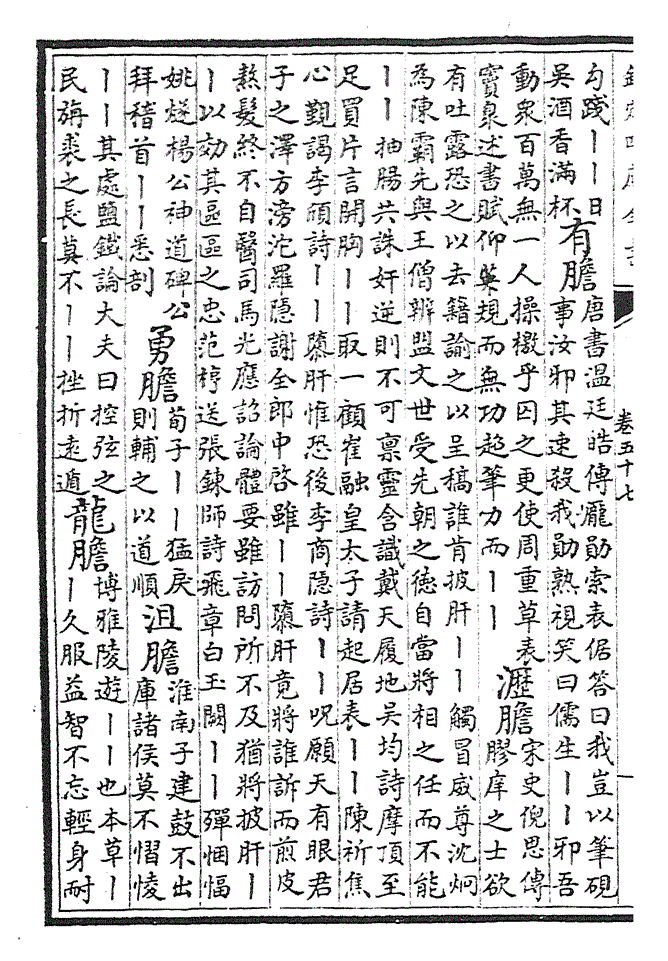 欽定四庫全書
卷五十七
勾踐ーー日
吳酒香滿杯
有膽
唐書溫廷皓傳龐勛索表倨答曰我豈以筆硯
事汝邪其速殺我勛熟視笑曰儒生ーー邪吾
動衆百萬無一人操檄乎囚之更使周重草表
竇臮述書賦仰集規而無功超筆力而ーー
瀝膽
宋史倪思傳
膠庠之士欲
有吐露恐之以去籍諭之以呈稿誰肯披肝ーー觸冒威尊沈炯
為陳霸先與王僧辨盟文世受先朝之德自當將相之任而不能
ーー抽腸共誅奸逆則不可禀靈含識戴天履地吳均詩摩頂至
足買片言開胸ーー取一顧崔融皇太子請起居表ーー陳祈焦
心覲謁李頎詩ーー隳肝惟恐後李商隱詩ーー呪願天有眼君
子之澤方滂沱羅隱謝全郎中啓雖ーー隳肝竟將誰訴而煎皮
熬髮終不自醫司馬光應詔論體要雖訪問所不及猶將披肝ー
ー以効其區區之忠范梈送張鍊師詩飛章白玉闕ーー殫悃愊
姚燧楊公神道碑公
拜稽首ーー悉剖
勇膽
荀子ーー猛戾
則輔之以道順
沮膽
淮南子建鼓不出
庫諸侯莫不慴㥄
ーー其處鹽鐵論大夫曰控弦之
民旃裘之長莫不ーー挫折遠遁
龍膽
博雅陵遊ーー也本草ー
ー久服益智不忘輕身耐